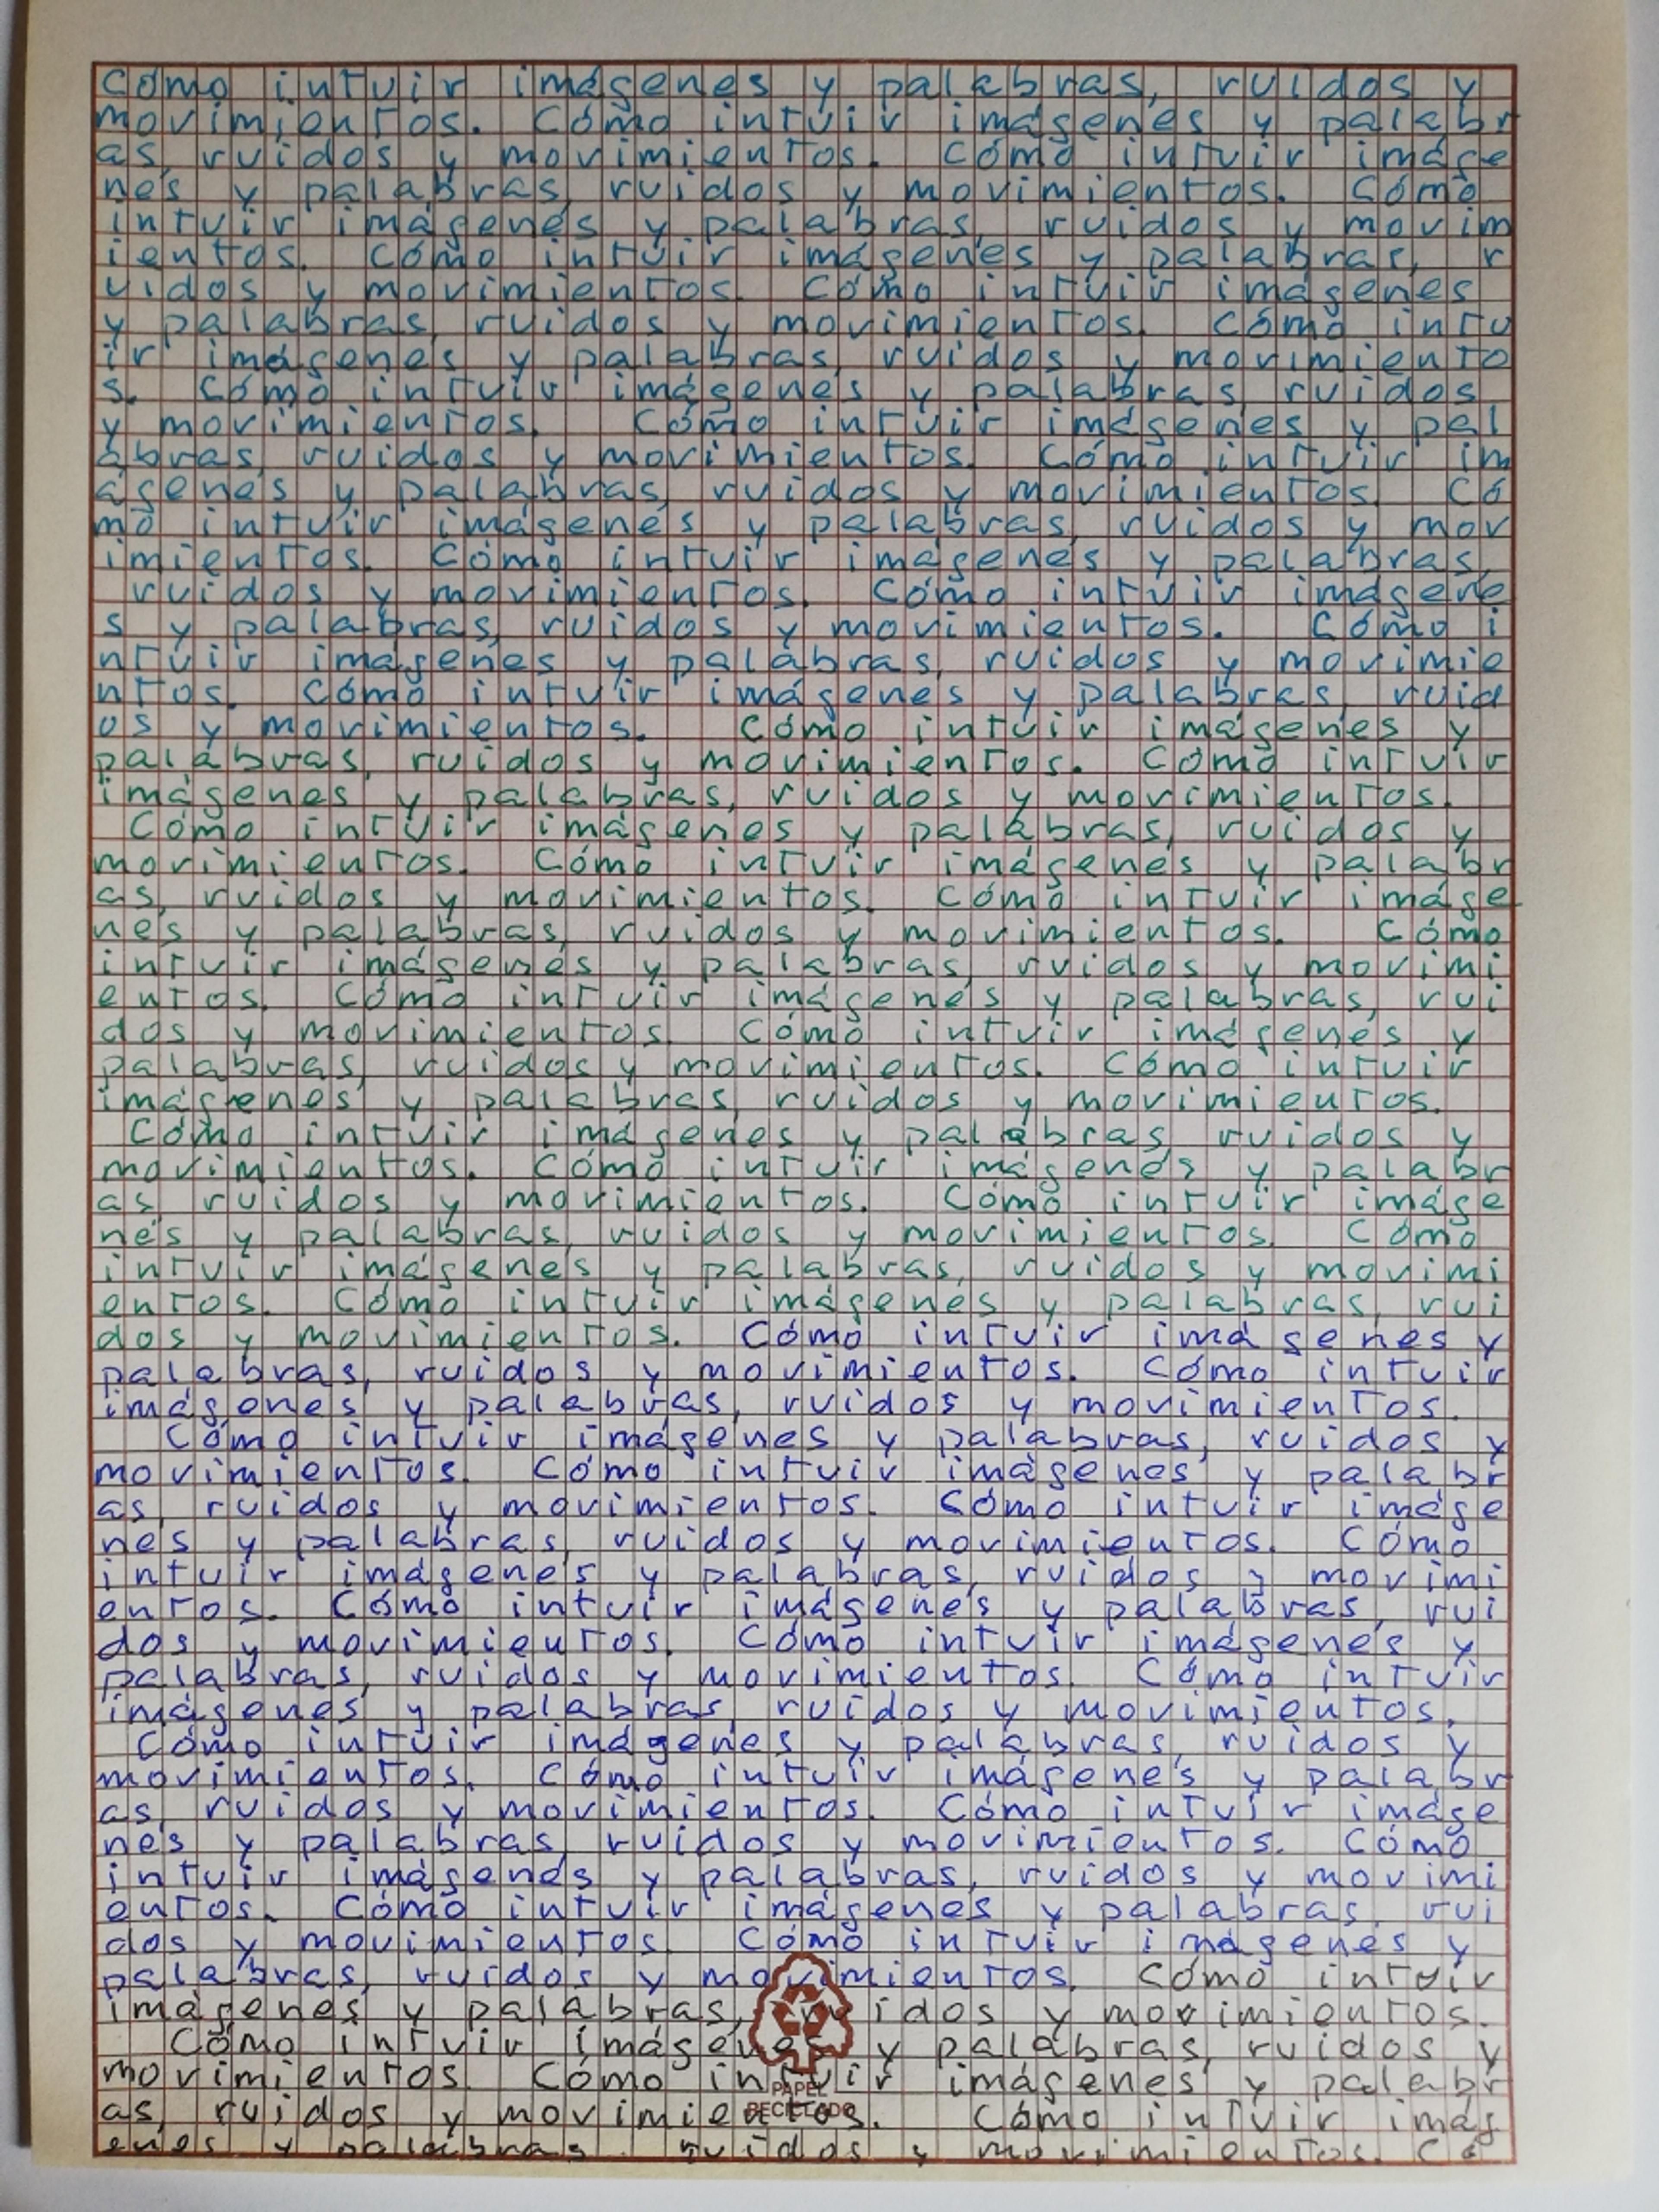 Cómo intuir imágenes y palabras, ruidos y
movimientos. Cómo intuir imágenes y palabr
as, ruidos y movimientos. Cómo intuir imáge
nes y palabras, ruidos y movimientos. Cómo
intuir imágenes y palabras, ruidos y movim
ientos. Cómo intuir imágenes y palabras, r
uidos y movimientos. Cómo intuir imágenes
y palabras, ruidos y movimientos. Cómo intu
ir imágenes y palabras, ruidos y movimiento
s. Cómo intuir imágenes y palabras, ruidos
y movimientos. Cómo intuir imágenes y pal
abras, ruidos y movimientos. Cómo intuir im
ágenes y palabras, ruidos y movimientos. Có
mo intuir imágenes y palabras, ruidos y mov
imientos. Cómo intuir imágenes y palabras,
ruidos y movimientos. Cómo intuir imágene
s y palabras, ruidos y movimientos. Cómo i
ntuir imágenes y palabras, ruidos y movimie
ntos. Cómo intuir imágenes y palabras, ruid
os y movimientos. Cómo intuir imágenes y
palabras, ruidos y movimientos. Cómo intuir
imágenes y palabras, ruidos y movimientos.
Cómo intuir imágenes y palabras, ruidos y
movimientos. Cómo intuir imágenes y palabr
as, ruidos y movimientos. Cómo intuir imáge
nes y palabras, ruidos y movimientos. Cómo
intuir imágenes y palabras, ruidos y movimi
entos. Cómo intuir imágenes y palabras, rui
dos y movimientos. Cómo intuir imágenes y
palabras, ruidos y movimientos. Cómo intuir
imágenes y palabras, ruidos y movimientos.
Cómo intuir imágenes y palabras, ruidos y
movimientos. Cómo intuir imágenes y palabr
as, ruidos y movimientos. Cómo intuir imáge
nes y palabras, ruidos y movimientos. Cómo
intuir imágenes y palabras, ruidos y movimi
entos. Cómo intuir imágenes y palabras, rui
dos y movimientos. Cómo intuir imágenes y
palabras, ruidos y movimientos. Cómo intuir
imágenes y palabras, ruidos y movimientos.
Cómo intuir imágenes y palabras, ruidos y
movimientos. Cómo intuir imágenes y palabr
as, ruidos y movimientos. Cómo intuir imáge
nes y palabras, ruidos y movimientos. Cómo
intuir imágenes y palabras, ruidos y movimi
entos. Cómo intuir imágenes y palabras, rui
dos y movimientos. Cómo intuir imágenes y
palabras, ruidos y movimientos. Cómo intuir
imágenes y palabras, ruidos y movimientos.
Cómo intuir imágenes y palabras, ruidos y
movimientos. Cómo intuir imágenes y palabr
as, ruidos y movimientos. Cómo intuir imáge
nes y palabras, ruidos y movimientos. Cómo
intuir imágenes y palabras, ruidos y movimi
entos. Cómo intuir imágenes y palabras, rui
dos y movimientos. Cómo intuir imágenes y
palabras, ruidos y movimientos. Cómo intuir
imágenes y palabras, ruidos y movimientos.
Cómo intuir imágenes y palabras, ruidos y
movimientos. Cómo intuir imágenes y palabr
PAPEL
as, ruidos y movimientos. Cómo intuir imág
RECICLADO
enes y palabras, ruidos y movimientos. Có